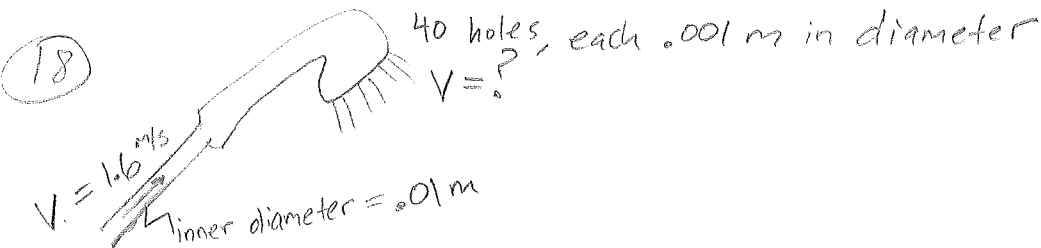 18
40 holes, each .001 m in diameter
V = ?
V. = 1.6 m/s
inner diameter = .01 m